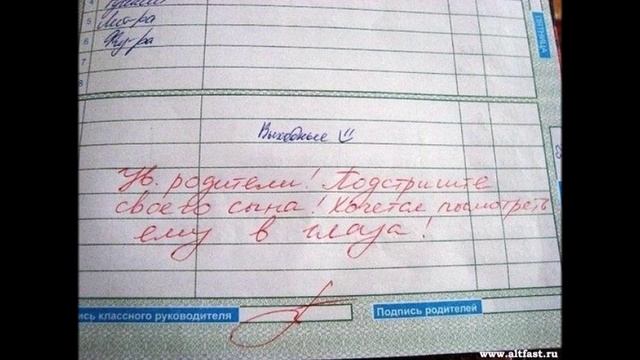 4
5 Лит-ра
6 Физ-ра
7
8
ПЯТНИЦА
Выходные
Ув. родители! Подстригите
своего сына! Хочется посмотреть
ему в глаза!
ись классного руководителя
Подпись родителей
www.altfast.ru